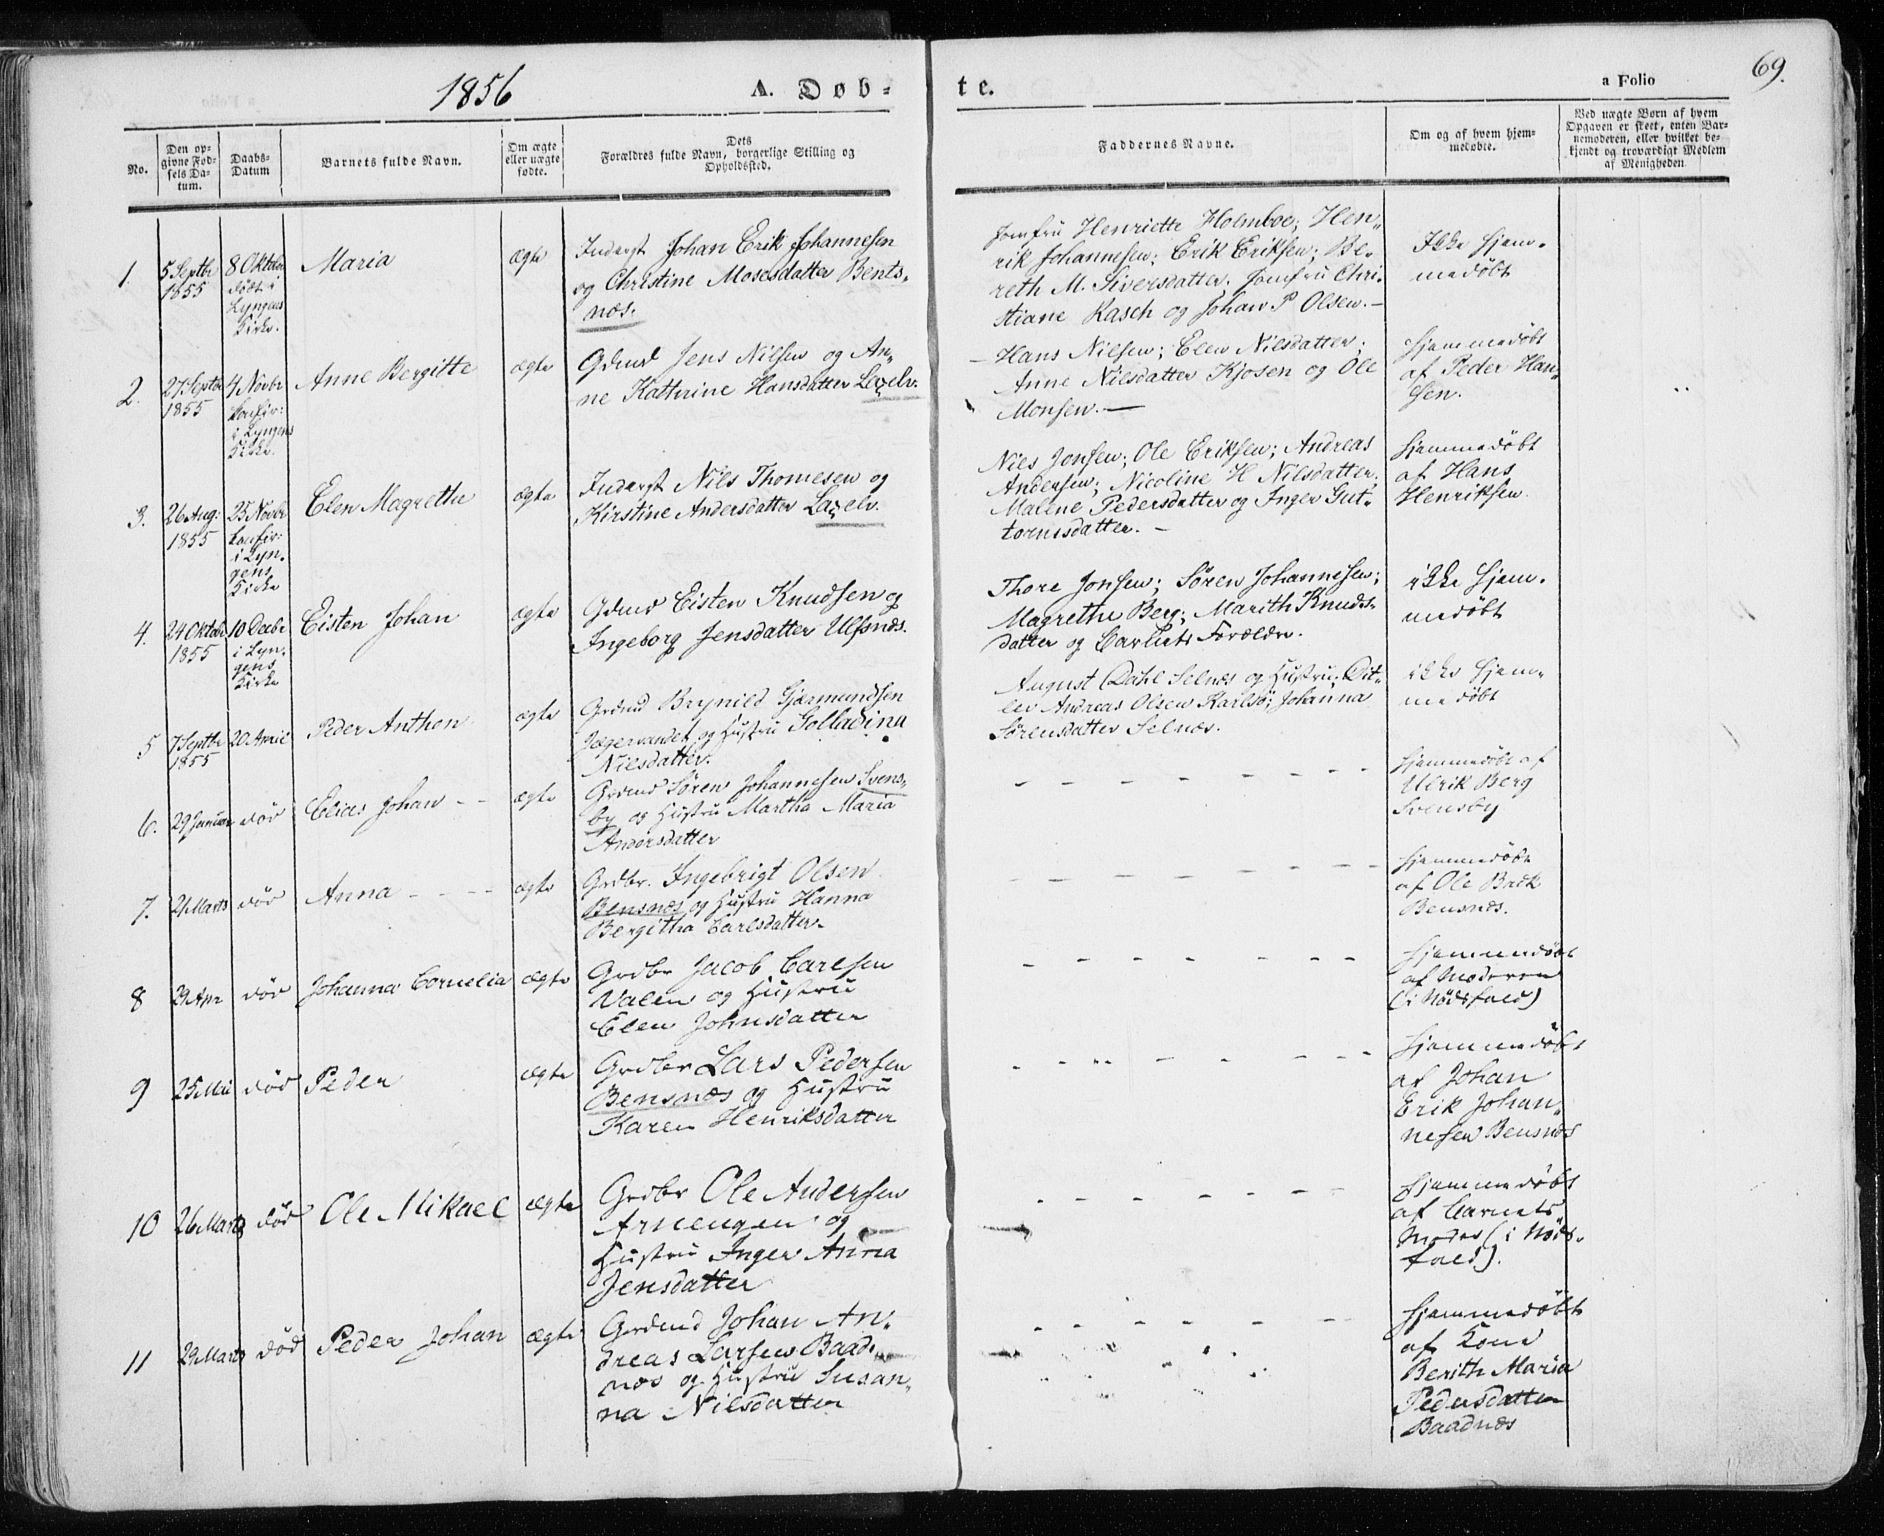 1856
A. Døb-
te.
69.
a Folio
No.
Den op-
givne Fød-
sels Da-
tum.
Daabs-
Datum
Barnets fulde Navn.
Om ægte
eller uægte
fødte.
Dets
Forældres fulde Navn, borgerlige Stilling og
Opholdssted.
Faddernes Navne.
Om og af hvem hjem-
medøbte.
Ved uægte Børn af hvem
Opgaven er skeet, enten Bar-
nemoderen, eller hvilket be-
kjendt og troværdigt Medlem
af Menigheden
1.
5 Septbr
1855
8 Oktober
døbt i
Lyngens
Kirke.
Maria
ægte
Inderst Johan Erik Johannesen
og Christine Mosesdatter Bents-
næs.
Jomfru Henriette Holmboe; Hen-
rik Johannesen; Erik Eriksen; Be-
reth M. Siversdatter, Jomfru Chri-
stiane Rasch og Johan P Olsen.—
Ikke hjem-
medøbt
2.
27 Septbr
1855
4 Novbr
konfir:
i Lyngens
Kirke.
Anne Bergitte
ægte
Gdmd Jens Nilsen og An-
ne Kathrine Hansdatter Laxelv.
Hans Nilsen; Elen Nilsdatter;
Anne Nilsdatter Kjosen og Ole
Monsen.—
hjemmedøbt
af Peder Han-
sen.
3.
26 Aug:
1855
25 Novbr
konfir:
i Lyn-
gens
Kirke
Elen Magrethe
ægte
Inderst Nils Thomesen og
Kirstine Andersdatter Laxelv.
Niels Jonsen; Ole Eriksen; Andreas
Andersen; Nicoline H Nilsdatter;
Malene Pedersdatter og Inger Gut-
tormsdatter.—
hjemmedøbt
af Hans
Henriksen.
4.
24 Oktobr
1855
10 Decbr
i Lyn-
gens
Kirke
Eisten Johan
ægte
Gdmd Eisten Knudsen og
Ingeborg Jensdatter Ulfsnæs.
Thore Jonsen; Søren Johannesen;
Magrethe Berg; Marith Knuds-
datter og Barnets Forældre.
ikke hjem-
medøbt
5
7 Septbr
1855
20 April
Peder Anthon
ægte
Grdmd Brynild Gjærmundsen
Jægervandet og Hustru Golladina
Nilsdatter.
August Dahl Selnæs og Hustru; Dit-
lev Andreas Olsen Karlsø; Johanna
Sørensdatter Selnæs.
ikke hjem-
medøbt
6.
29 Januar
død
Elias Johan - -
ægte
Grdmd Søren Johannesen Svens-
by og Hustru Martha Maria
Andersdatter
hjemmedøbt af
Ulrik Berg
Svensby
7.
21 Marts
død
Anna - - - -
ægte
Grdbr. Ingebrigt Olsen
Bensnæs og Hustru Hanna
Bergitha Carlsdatter.
hjemmedøbt
af Ole Back
Bensnæs.
8
29 Apr
død
Johanna Cornelia
ægte
Grdbr Jacob Carlsen
Valen og Hustru
Elen Johnsdatter
hjemmedøbt
af Moderen
(i Nødsfald)
9
25 Mai
død
Peder
ægte
Grdbr Lars Pedersen
Bensnæs og Hustru
Karen Henriksdatter
hjemmedøbt
af Johan
Erik Johan-
nesen Bensnæs
10
26 Marts
død
Ole Mikael
ægte
Grdbr Ole Andersen
Arnengen og
Hustru Inger Anna
Jensdatter
hjemmedøbt
af Barnets
Moder (i Nøds-
fald).
11
29 Marts
død
Peder Johan
ægte
Grdmd Johan An-
dreas Larsen Baad-
næs og Hustru Susan-
na Nilsdatter
hjemmedøbt
af Kone
Berith Maria
Pedersdatter
Baadnæs